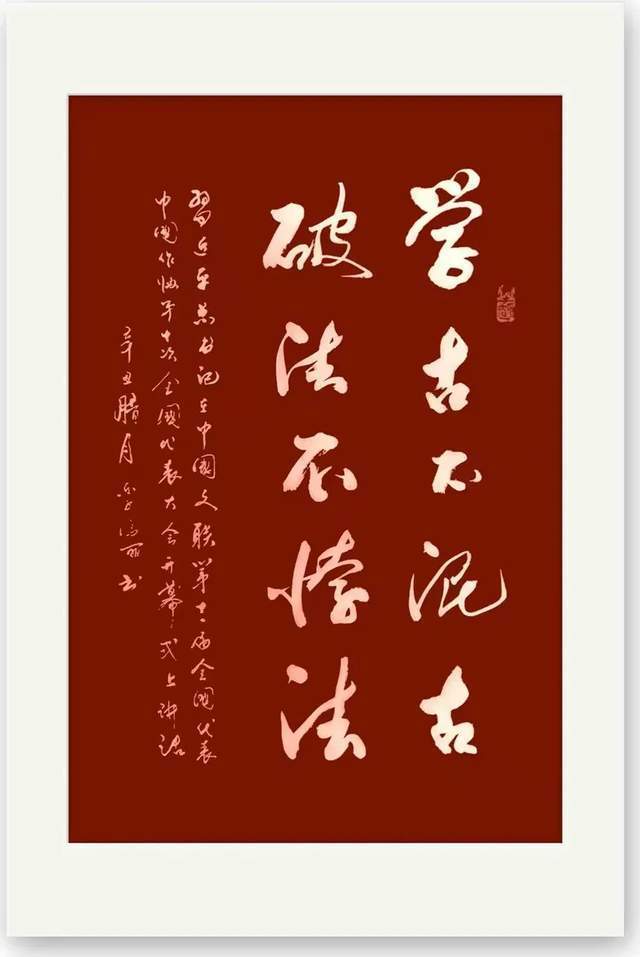 学古不泥古
破法不悖法
習近平总书记在中國文联第十一届全國代表
中國作协第十次全國代表大会开幕式上讲话
辛丑腊月书